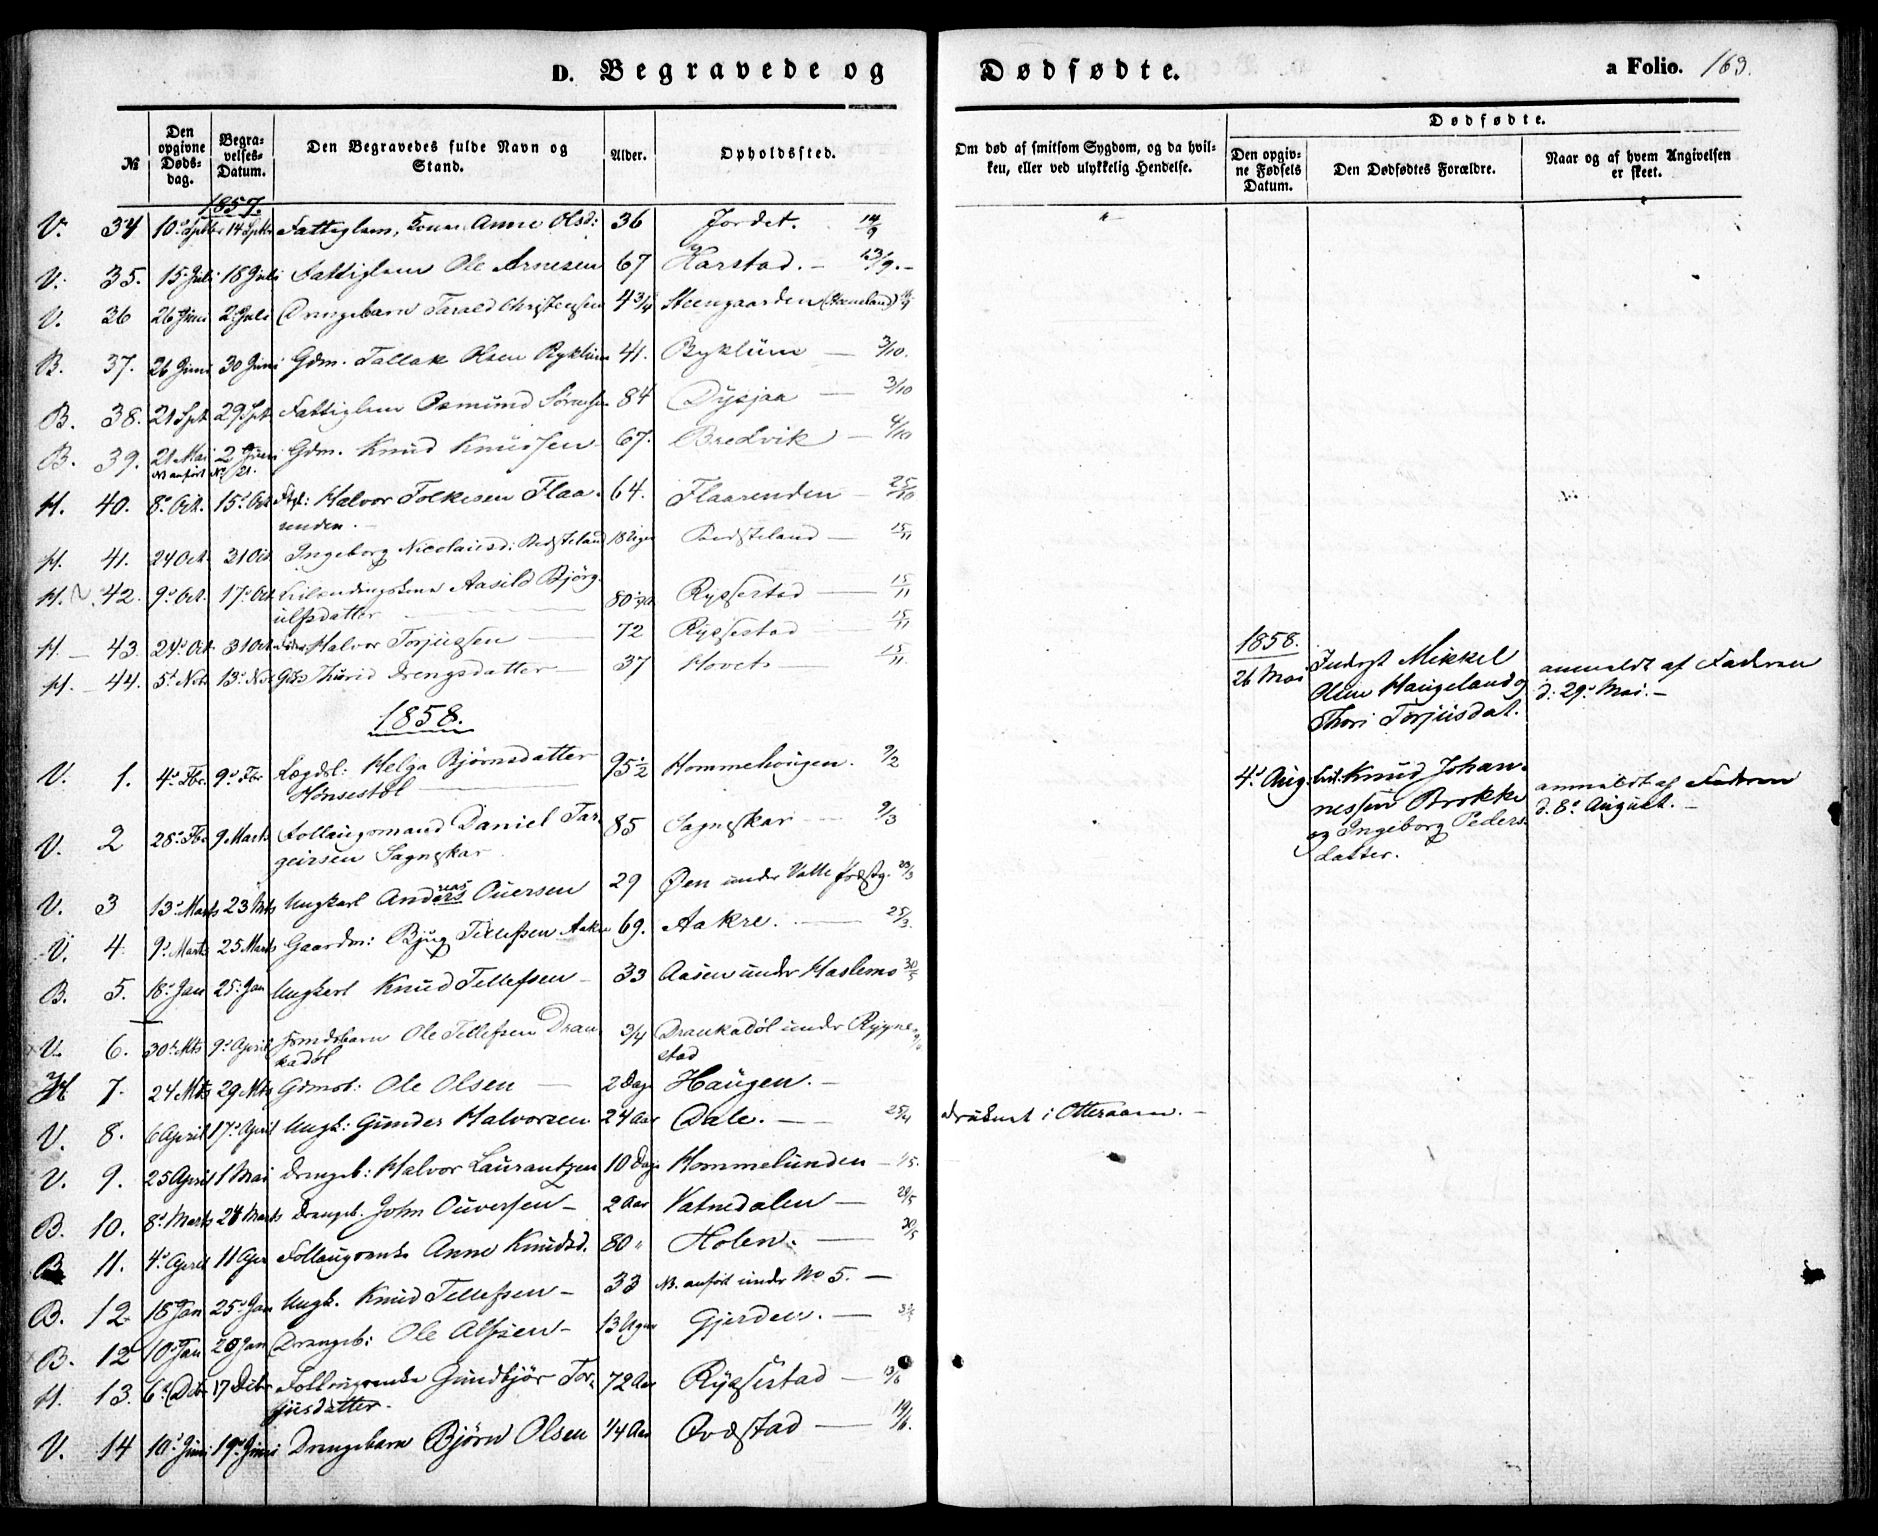 D. Begravede og Dødfødte. a Folio. 163.
№ Den opgivne Døds-dag. Begra-velses-Datum. Den Begravedes fulde Navn og Stand. Alder. Opholdssted. Om død af smitsom Sygdom, og da hvil-ken, eller ved ulykkelig Hendelse. Dødfødte. Den opgiv-ne Fødsels Datum. Den Dødfødtes Forældre. Naar og af hvem Angivelsen er skeet.
1857.
V. 34 10. Septbr 14 Septbr Fattiglem, Anne Olsd: 36 Jordet. 14/9 "
V. 35. 15 Juli 18 Juli Fattiglem Ole Arnesen 67 Harstad. — 13/9. —
V. 36 26 Juni 2 Juli Drengebarn Tarald Christensen 4 3/4 Steengaarden
B. 37. 26 Juni 30 Juni Gdm. Tallak Olsen Byklum 41. Byklum — 3/10.
B. 38. 21 Spt 29 Spt. Fattiglem Osmund Sørensen 84 Dysjaa — 3/10
B. 39. 21 Mai 2 Juni Gdm. Knud Knudsen 67. Bredvik — 4/10
NB anført No 21.
H. 40. 8d Oct. 15d Oct Halvor Folkesen Flaa- 64. Flaarenden — 25/10
renden. —
H. 41. 24 Oct. 31 Oct Ingeborg Nicolaisd: 18 Uger — 15/11
H. 42. 9d Oct. 17d Oct Aasild Bjørg- 80 Rysestad — 15/11
ulfsdatter
H. — 43. 24d Oct. 31 Oct Halvor Torjussen — 72 Rysestad 15/11
H. — 44. 5d Nov 13d Nov Thurid Drengsdatter — 37 Hovet — 15/11.
1858.
26 Mai Inderst Mikkel
Olsen Haugeland og
Thori Torjusdat.
anmeldt af Faderen
d. 29d Mai. —
1858.
V. 1. 4d Fbr. 9d Fbr Lægdsl: Helga Bjørnsdatter 95 1/2 Hommehougen. 9/2
Hønsestøl —
4d Aug. Knud Johan-
nessen Brokke
og Ingeborg Peders-
datter.
anmeldt af Faderen
d. 8d August. —
V. 2 28d Fbr. 9 Marts Follaugsmand Daniel Tar- 85 Sagneskar — 9/3
geirsen Sagneskar
V. 3 13d Marts 23 Mts Ungkarl Andersreas Ouersen 29 Øen under Valle Præstg. 23/3
V. 4. 9d Marts 25 Marts Gaardm: Bjug Tellefsen Aakre 69. Aakre. — 25/3.
B. 5. 18d Jan 25d Jan Ungkarl Knud Tellefsen — 33 Aasen under Haslemo 30/5
V. 6. 30d Mts 9d April Ole Tellefsen Dran- 3/4 Drankadøl under Rygne-
kadøl stad
H 7. 24 Mts 29 Mts Gdmsb: Ole Olsen — 2 Dage Haugen. —
V. 8. 6 April 17d April Ungk: Gunder Halvorsen 24 Aar Dale. — 25/4 druknet i Otteraaen. —
V. 9. 25 April 1 Mai Drengeb: Halvor Laurantzen 10 Dage Hommelunden — 1/5.
B. 10. 8d Marts 24 Marts Drengeb. John Ouversen — 2 Aar Vatnedalen — 29/5
B. 11. 4d April 11 Apr Anne Knudsd. 80 " Holen. — 30/5
B. 12 18 Jan 25d Jan Ungk. Knud Tellefsen — 33 NB. anført under No 5. —
B. 12 10d Jan 20 Jan Drengeb: Ole — 13 Uger Gjerden. —
H. 13. 6d Dcbr 17 Dcbr Gundbjør Tor- 72 Aar Rysestad — 13/6
jusdatter.
V. 14 10d Juni 19d Juni Drengebarn Bjørn Olsen 1/4 Aar Qvæstad — 19/6.